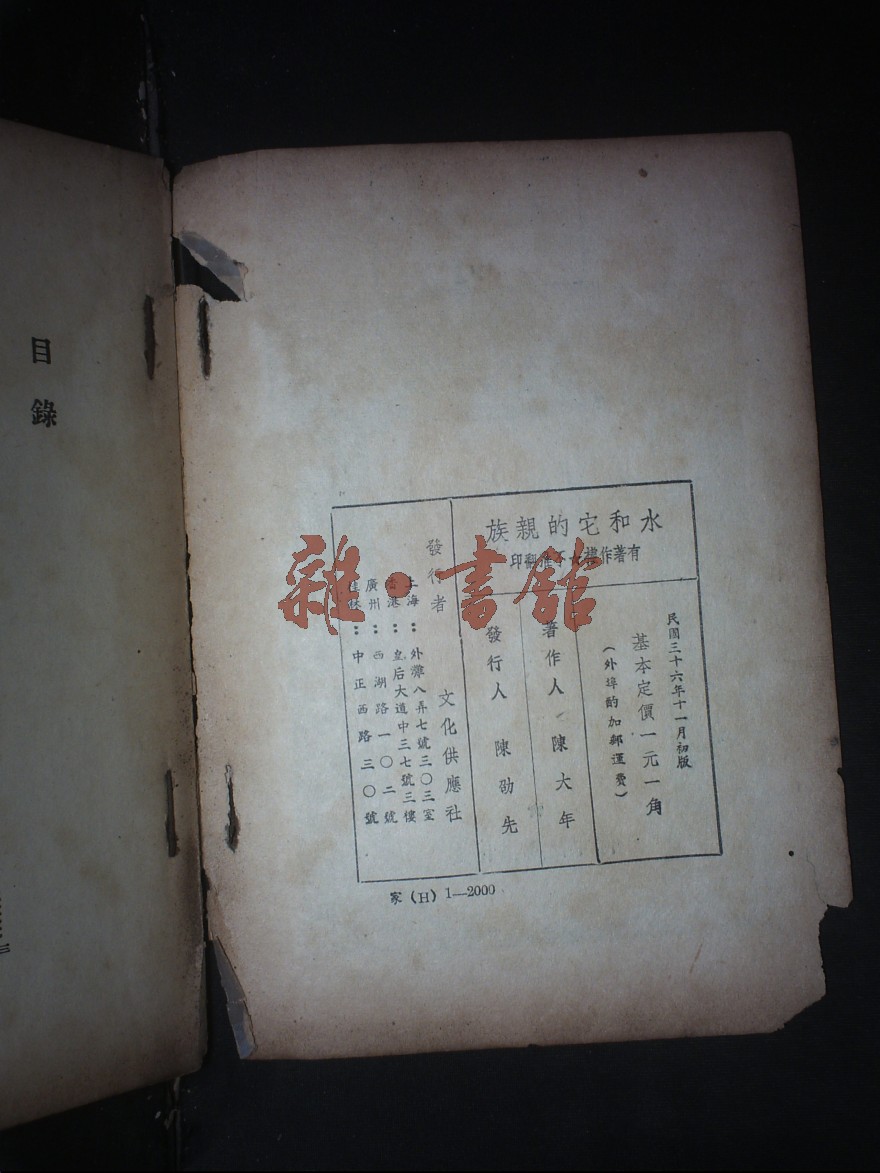 目錄
水和它的親族
有著作權 不准翻印
民國三十六年十一月初版
基本定價一元一角
(外埠酌加郵運費)
著作人 陳大年
發行人 陳劭先
發行者 文化供應社
上海：外灘八弄七號三〇三室
香港：皇后大道中三七號三樓
廣州：西湖路一〇二號
桂林：中正西路三〇號
家(H) 1—2000
雜·書館